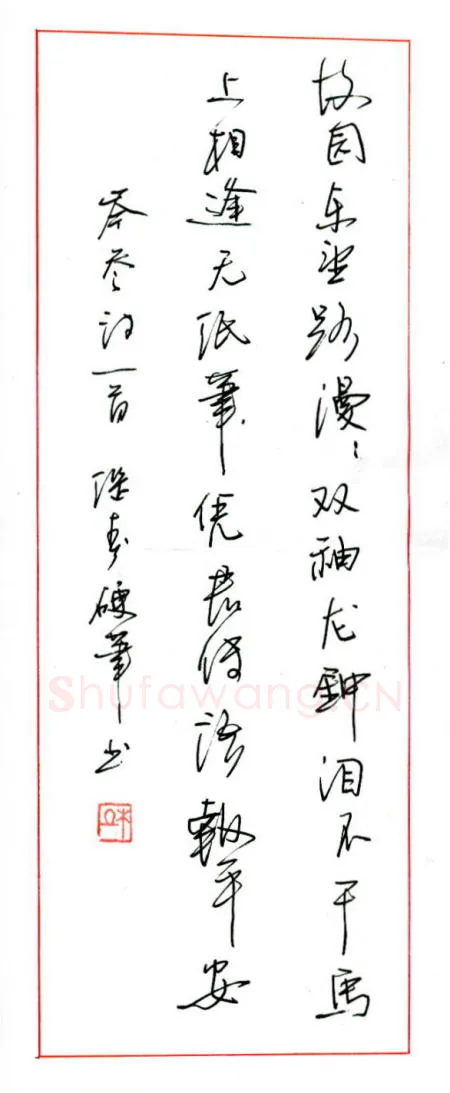 故园东望路漫〻双袖龙鈡泪不干马
上相逢无纸筆凭君传语報平安
岑参诗一首 硬筆书
Shufawang.CN